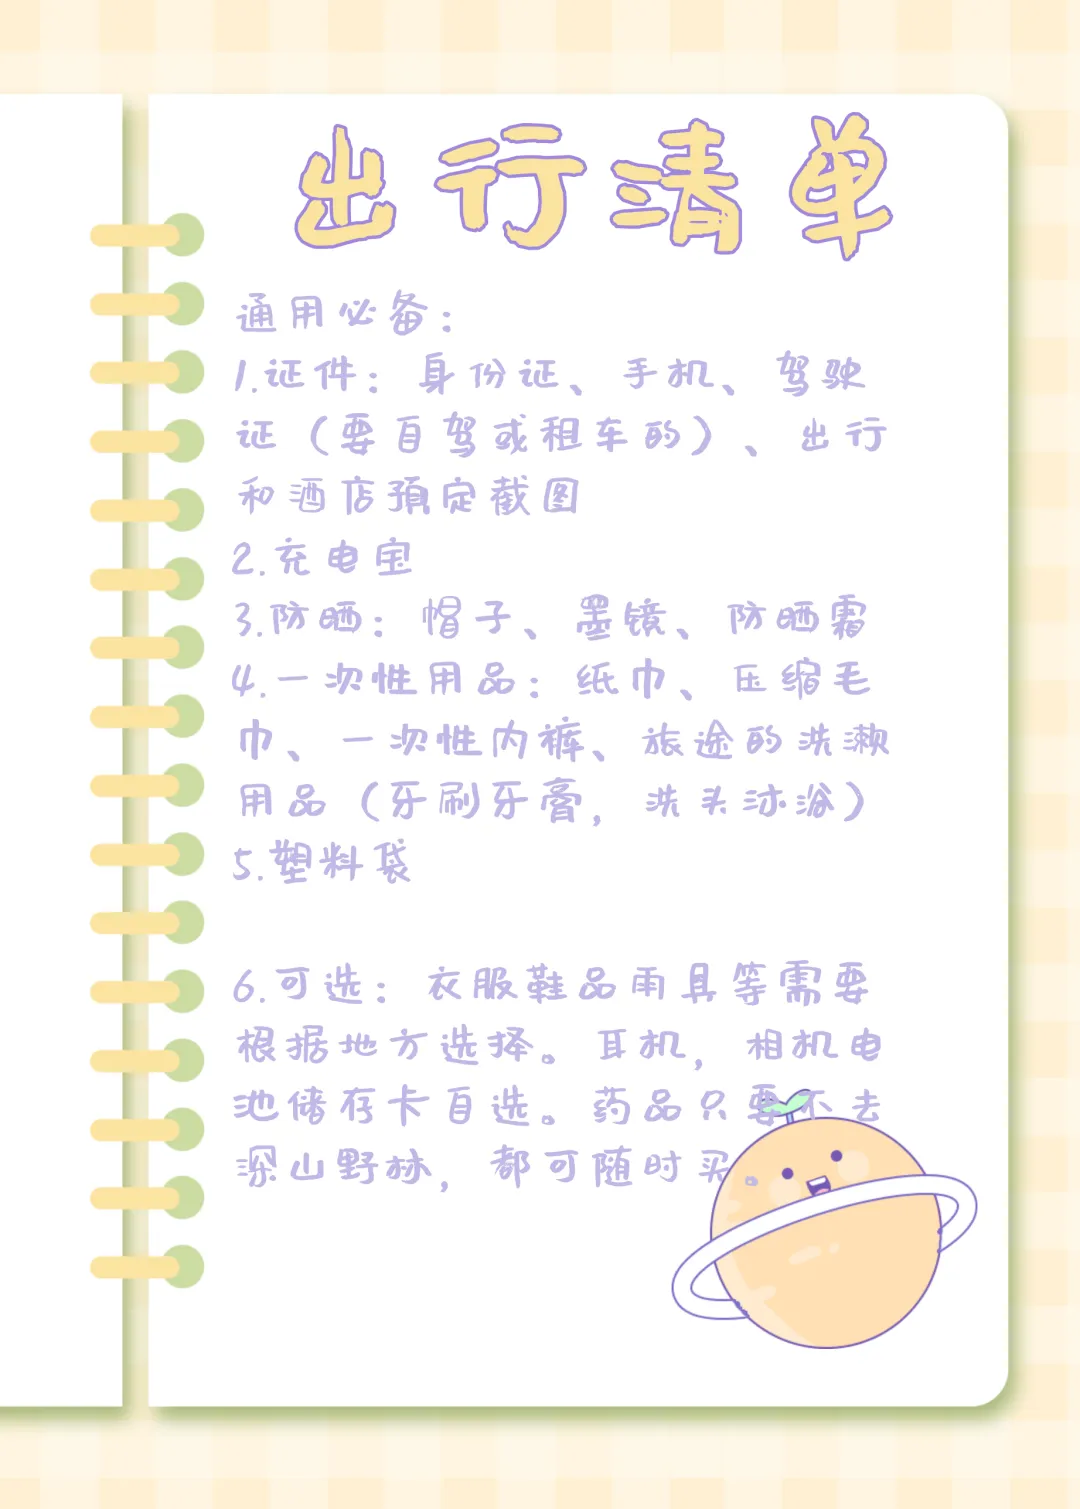 出行清单
通用必备：
1.证件：身份证、手机、驾驶
证（要自驾或租车的）、出行
和酒店预定截图
2.充电宝
3.防晒：帽子、墨镜、防晒霜
4.一次性用品：纸巾、压缩毛
巾、一次性内裤、旅途的洗漱
用品（牙刷牙膏，洗头沐浴）
5.塑料袋
6.可选：衣服鞋品雨具等需要
根据地方选择。耳机，相机电
池储存卡自选。药品只要不去
深山野林，都可随时买。